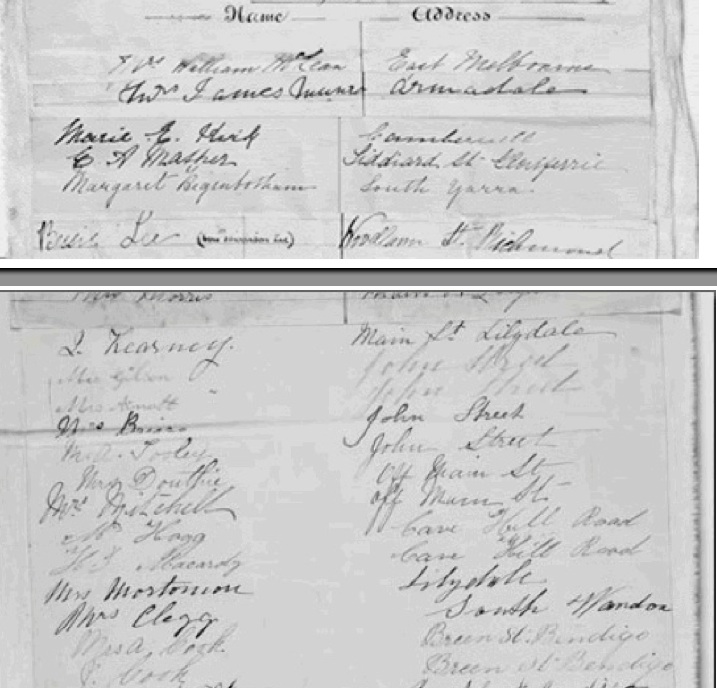 Name Address
Mrs William McLean East Melbourne
Mrs James Munro Armadale
Marie E. Kirk Camberwell
Liddiard St
Margaret Higinbotham South Yarra.
Bessie Lee St Richmond
Mrs Morris
J. Kearney. Main St Lilydale
Mrs Gibson John Street
Mrs Arnott " John Street
Mrs John Street
John Street
Mrs Douthie off Main St
Mrs Mitchell off Main St.
Hogg Cave Hill Road
Cave Hill Road
Mrs Mortomon Lilydale
Mrs Clegg South Wandon
Mrs A. Cook Breen St. Bendigo
J. Cook Breen St Bendigo